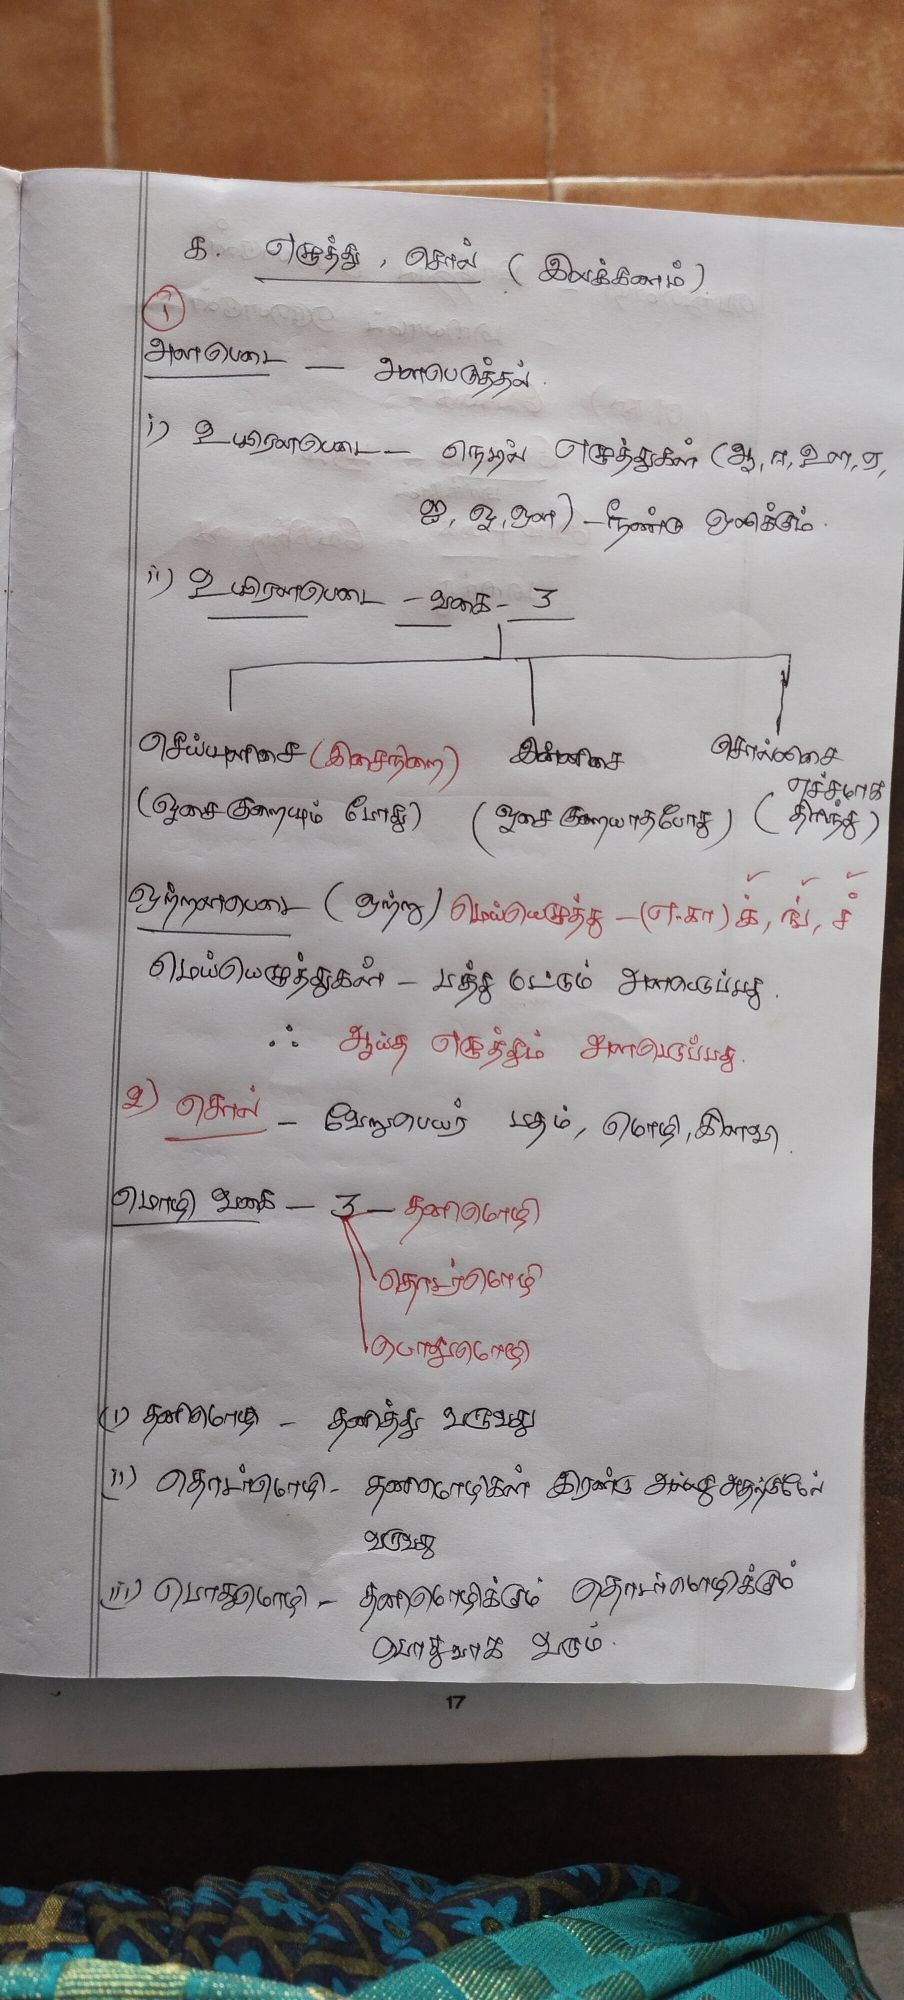 க. எழுத்து, சொல் (இலக்கணம்).
1
அளபெடை — அளபெடுத்தல்.
i) உயிரளபெடை — நெடில் எழுத்துகள் (ஆ, ஈ, ஊ, ஏ,
ஐ, ஓ, ஔ) - நீண்டு ஒலிக்கும்.
ii) உயிரளபெடை - வகை - 3
செய்யுளிசை (இசைநிறை) இன்னிசை சொல்லிசை
(ஓசை குறையும் போது) (ஓசை குறையாதபோது) (எச்சமாக
திரிந்து)
ஒற்றளபெடை (ஒற்று) மெய்யெழுத்து - (எ.கா) க், ங், ச்
மெய்யெழுத்துகள் - பத்து மட்டும் அளபெடுப்பது.
∴ ஆய்த எழுத்தும் அளபெடுப்பது.
2) சொல் - வேறுபெயர் பதம், மொழி, கிளவி.
மொழி வகை - 3 - தனிமொழி
தொடர்மொழி
பொதுமொழி
(i) தனிமொழி - தனித்து வருவது
ii) தொடர்மொழி - தனிமொழிகள் இரண்டு அல்லது அதற்குமேல்
வருவது
iii) பொதுமொழி - தனிமொழிக்கும் தொடர்மொழிக்கும்
பொதுவாக வரும்.
17